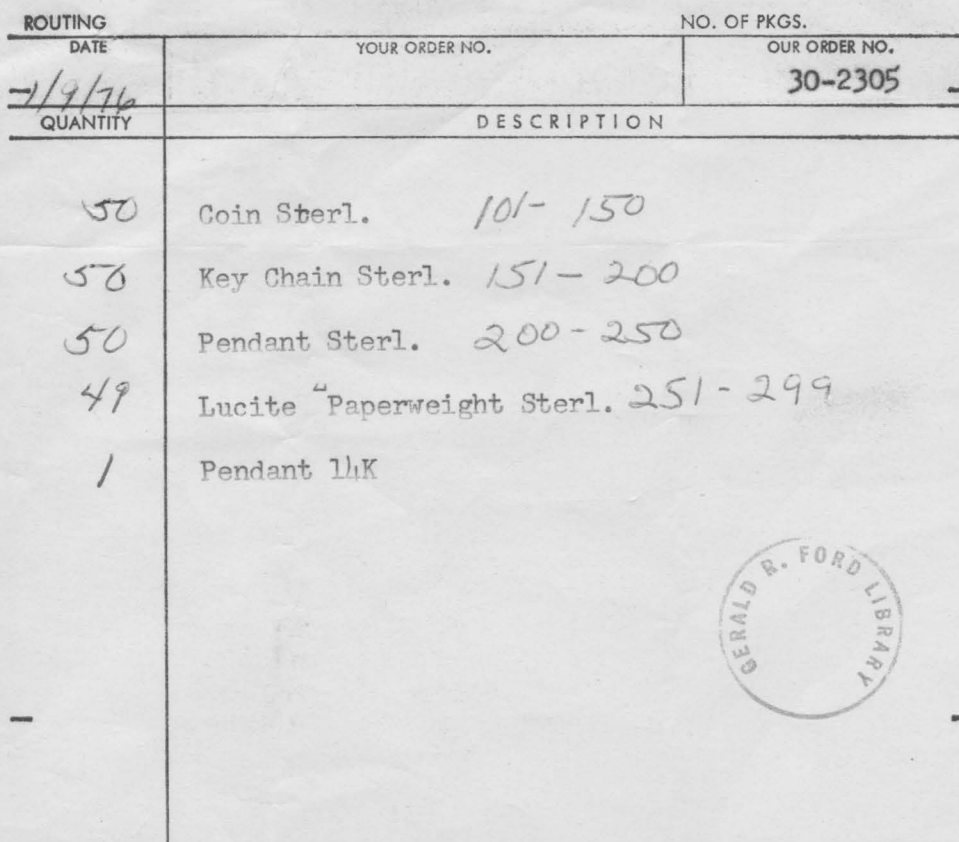 ROUTING NO. OF PKGS.
DATE YOUR ORDER NO. OUR ORDER NO.
1/9/76 30-2305
QUANTITY DESCRIPTION
50 Coin Sterl. 101- 150
50 Key Chain Sterl. 151 - 200
50 Pendant Sterl. 200 - 250
49 Lucite "Paperweight Sterl. 251 - 299
1 Pendant 14K
GERALD R. FORD LIBRARY